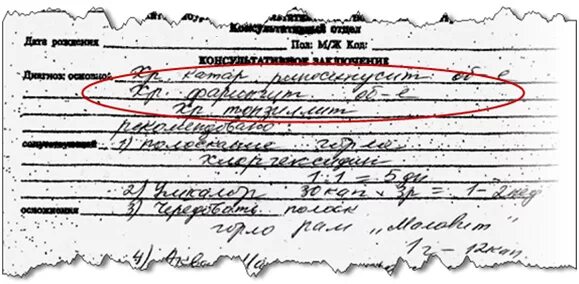 Консультативный отдел
Дата рождения Пол: М/Ж Код:
КОНСУЛЬТАТИВНОЕ ЗАКЛЮЧЕНИЕ
Диагноз: основной Хр. катар. риносинусит об-е
Хр. фарингит об-е
Хр. тонзиллит
рекомендовано:
сопутствующий 1) полоскание горла
хлоргексидин
1:1 = 5 дн
2) Умкалор 30 кап x 3р = 1-2 нед
осложнения 3) Чередовать полоск
горло рам „Маловит"
1г - 12 кап.
4)